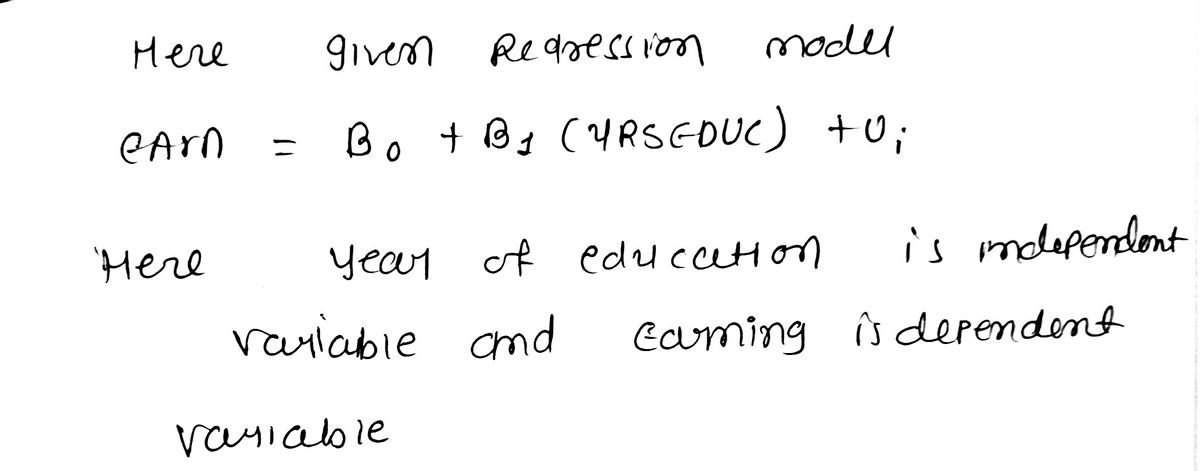 Here given Regression model
earn = B₀ + B₁ (YRSEDUC) + Uᵢ
Here year of education is independent
variable and earning is dependent
variable